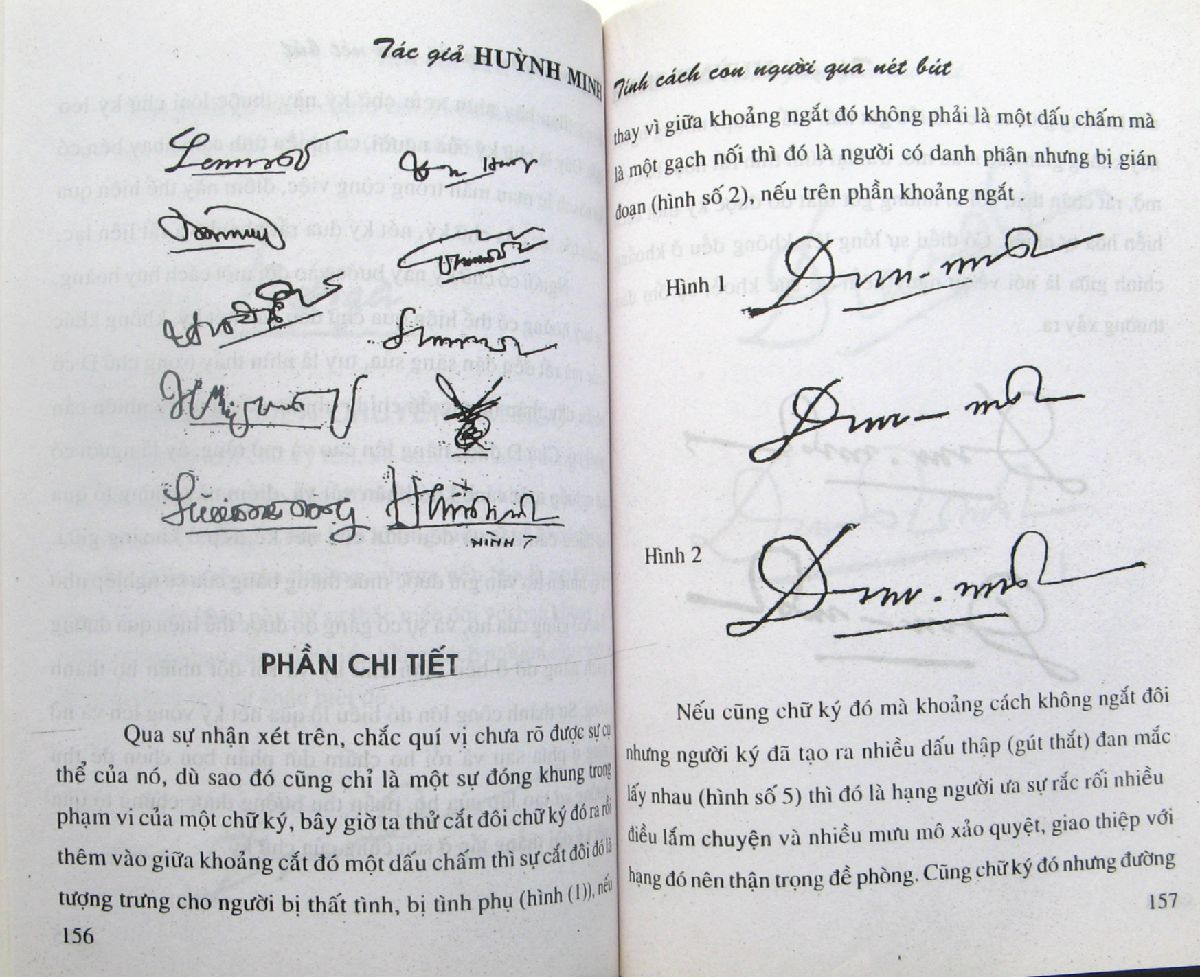 Tác giả HUỲNH MINH
HÌNH 7
PHẦN CHI TIẾT
Qua sự nhận xét trên, chắc quí vị chưa rõ được sự cụ
thể của nó, dù sao đó cũng chỉ là một sự đóng khung trong
phạm vi của một chữ ký, bây giờ ta thử cắt đôi chữ ký đó ra rồi
thêm vào giữa khoảng cắt đó một dấu chấm thì sự cắt đôi đó là
tượng trưng cho người bị thất tình, bị tình phụ (hình (1)), nếu
156
Tính cách con người qua nét bút
thay vì giữa khoảng ngắt đó không phải là một dấu chấm mà
là một gạch nối thì đó là người có danh phận nhưng bị gián
đoạn (hình số 2), nếu trên phần khoảng ngắt
Hình 1
Hình 2
Nếu cũng chữ ký đó mà khoảng cách không ngắt đôi
nhưng người ký đã tạo ra nhiều dấu thập (gút thắt) đan mắc
lấy nhau (hình số 5) thì đó là hạng người ưa sự rắc rối nhiều
điều lắm chuyện và nhiều mưu mô xảo quyệt, giao thiệp với
hạng đó nên thận trọng đề phòng. Cũng chữ ký đó nhưng đường
157